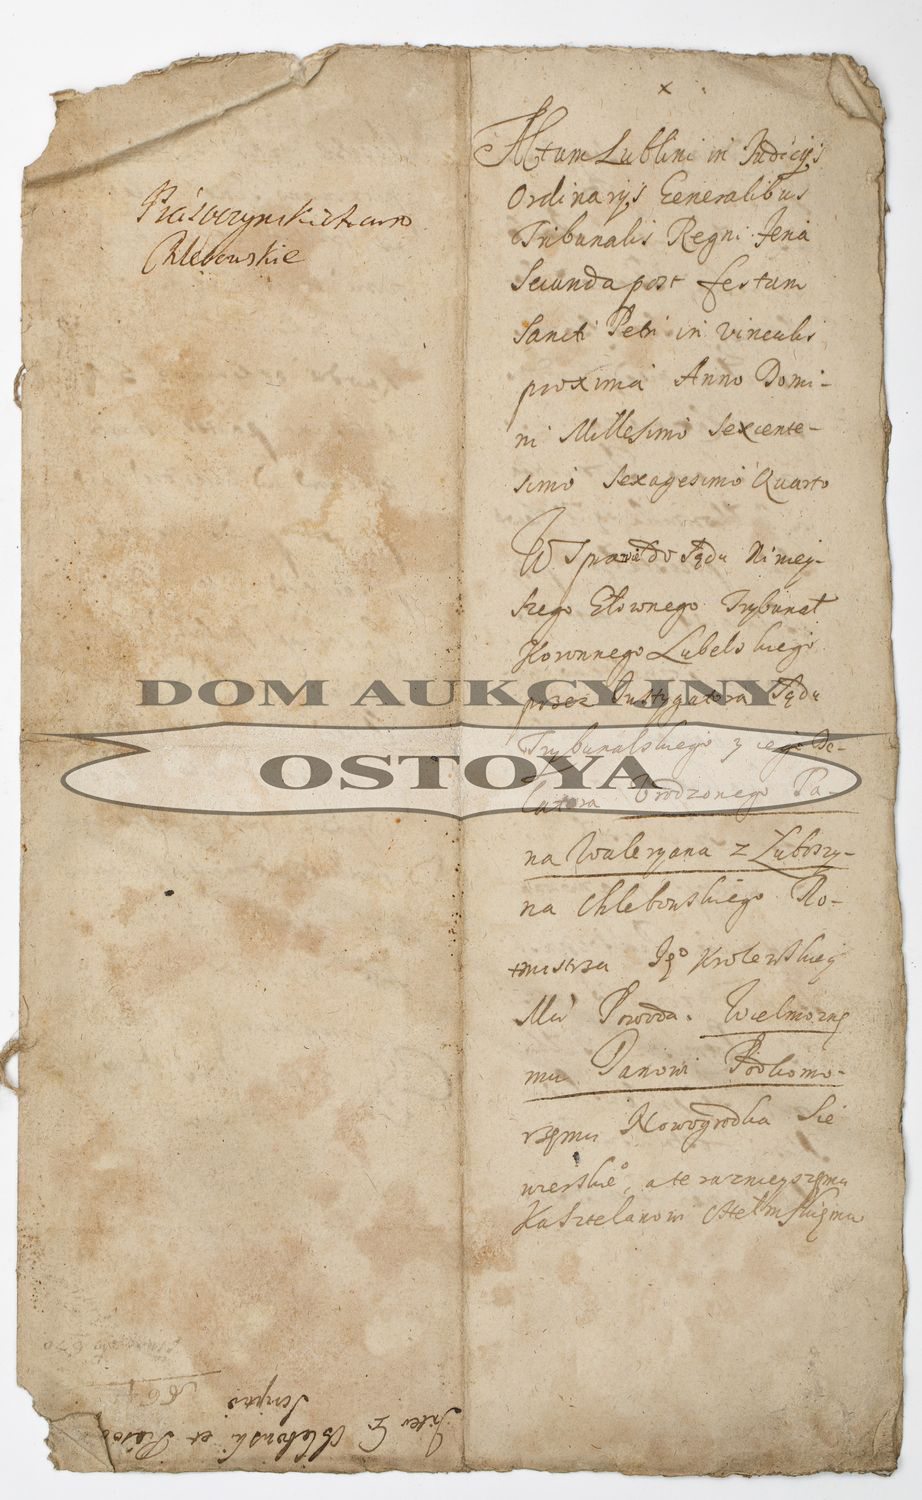 Piasoczynskich
Chlebowskie
x
Actum Lublini in Judicijs
Ordinarijs Generalibus
Tribunalis Regni Feria
Secunda post festum
Sancti Petri in vinculis
proxima Anno Domi-
ni Millesimo Sexcente-
simo Sexagesimo Quarto
W Sprawie do Sądu Niniey-
szego Głownego Trybunał
Koronnego Lubelskiego
przez Instygatora Sądu
Trybunalskiego y iego De-
latora Urodzonego Pa-
na Waleryana z Luboszy-
na Chlebowskiego Ro-
tmistrza Jgo Krolewskiey
Mci Powoda. Wielmozne
mu Panowi Podkomo-
rzemu Nowogrodka Sie
wierskio, a teraznieyszemu
Kasztelanowi Chełmskiemu
DOM AUKCYJNY
OSTOYA
Inter G. Chlebowski et Piaso